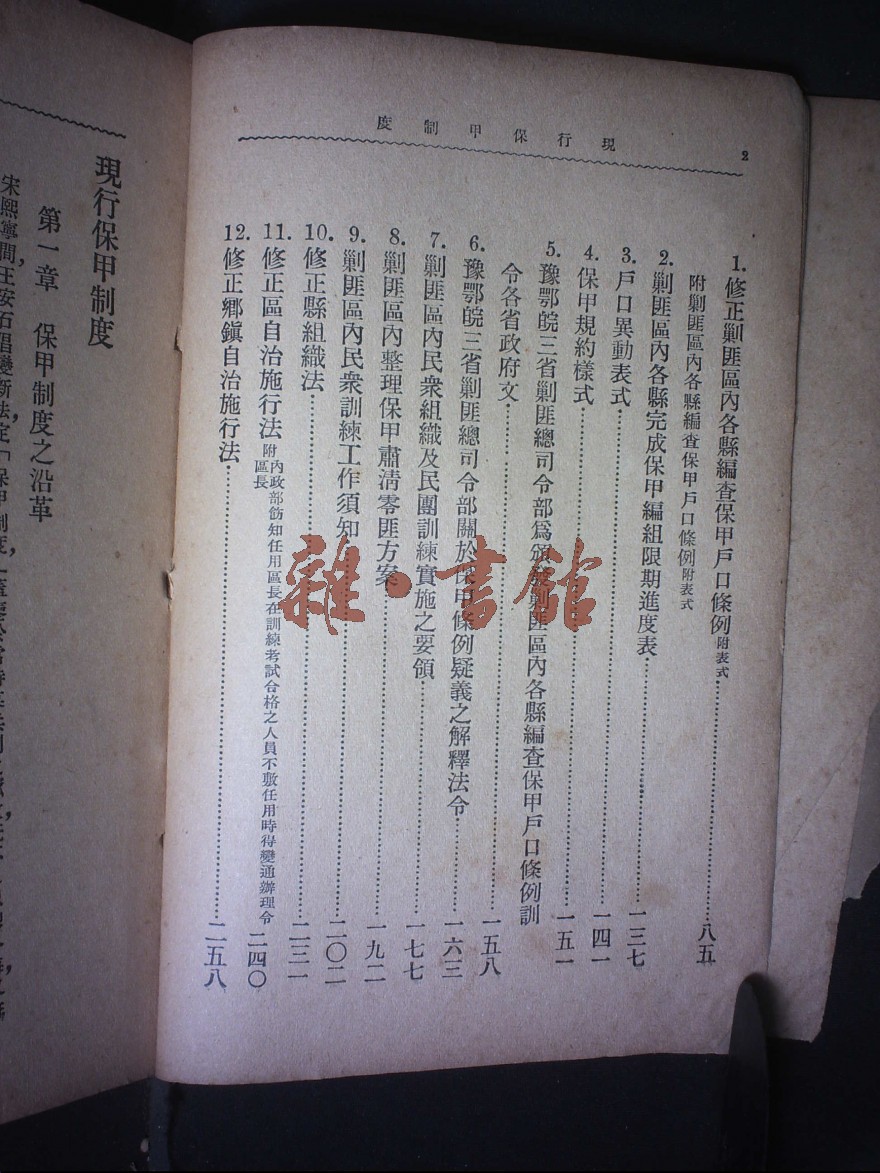 現行保甲制度
2
1. 修正剿匪區內各縣編查保甲戶口條例附表式……八五
附剿匪區內各縣編查保甲戶口條例附表式
2. 剿匪區內各縣完成保甲編組限期進度表……一三七
3. 戶口異動表式……一四一
4. 保甲規約樣式……一五一
5. 豫鄂皖三省剿匪總司令部爲頒發剿匪區內各縣編查保甲戶口條例訓
令各省政府文……一五八
6. 豫鄂皖三省剿匪總司令部關於保甲條例疑義之解釋法令……一六三
7. 剿匪區內民衆組織及民團訓練實施之要領……一七七
8. 剿匪區內整理保甲肅清零匪方案……一九二
9. 剿匪區內民衆訓練工作須知……二〇二
10. 修正縣組織法……二三一
11. 修正區自治施行法附內政部飭知任用區長在訓練考試合格之人員不敷任用時得變通辦理令
區長……二四〇
12. 修正鄉鎮自治施行法……二五八
現行保甲制度
第一章 保甲制度之沿革
宋熙寧間，王安石倡變新法，定「保甲制度，
雜·書館